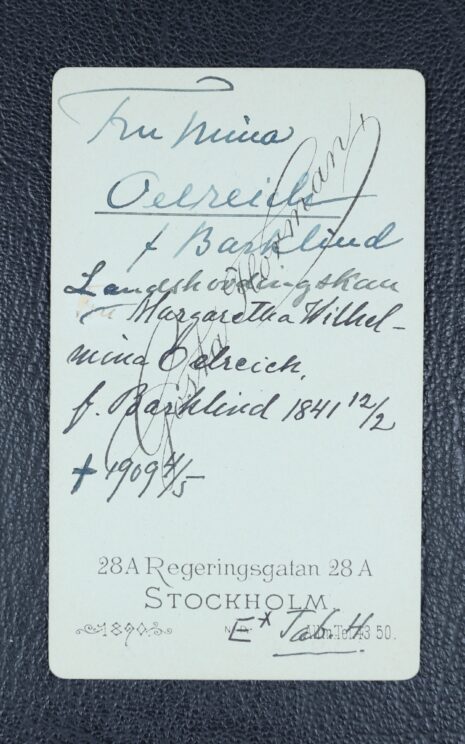 Fru Mina
Oelreich
f Barklind
Landshövdingskan
Margaretha Wilhel-
mina Oelreich,
f. Barklind 1841 12/2
† 1909 4/5
Gösta Florman
28A Regeringsgatan 28 A
STOCKHOLM
1890. Allm. Tel. 43 50.
E* Tab. H